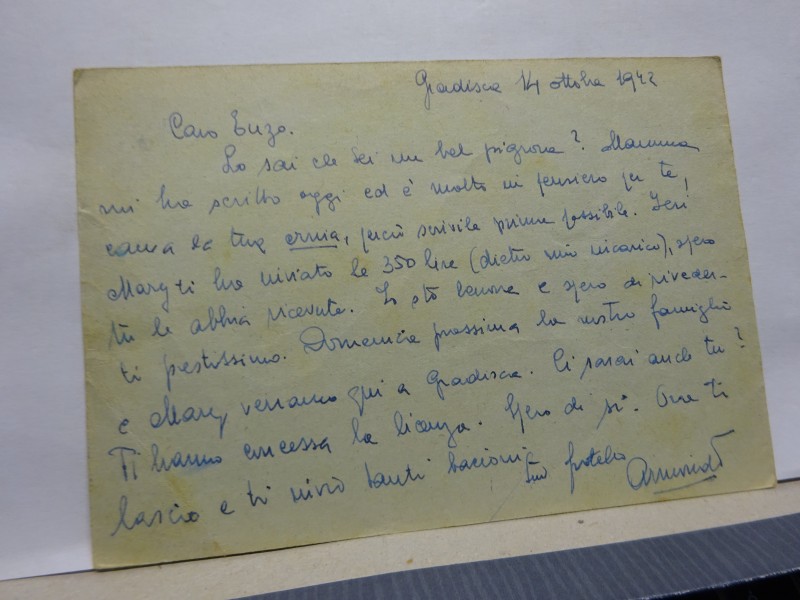 Gradisca 14 ottobre 1942
Caro Enzo.
Lo sai che sei un bel pigrone? Mamma
mi ha scritto oggi ed è molto in pensiero per te,
causa la tua ernia, perciò scrivile prima possibile. Ieri
Mary ti ha inviato le 350 lire (dietro mio incarico), spero
tu le abbia ricevute. Io stò benone e spero di riveder-
ti prestissimo. Domenica prossima la nostra famiglia
e Mary verranno qui a Gradisca. Ci sarai anche tu?
Ti hanno concessa la licenza. Spero di sì. Ora ti
lascio e ti invio tanti bacioni
tuo fratello